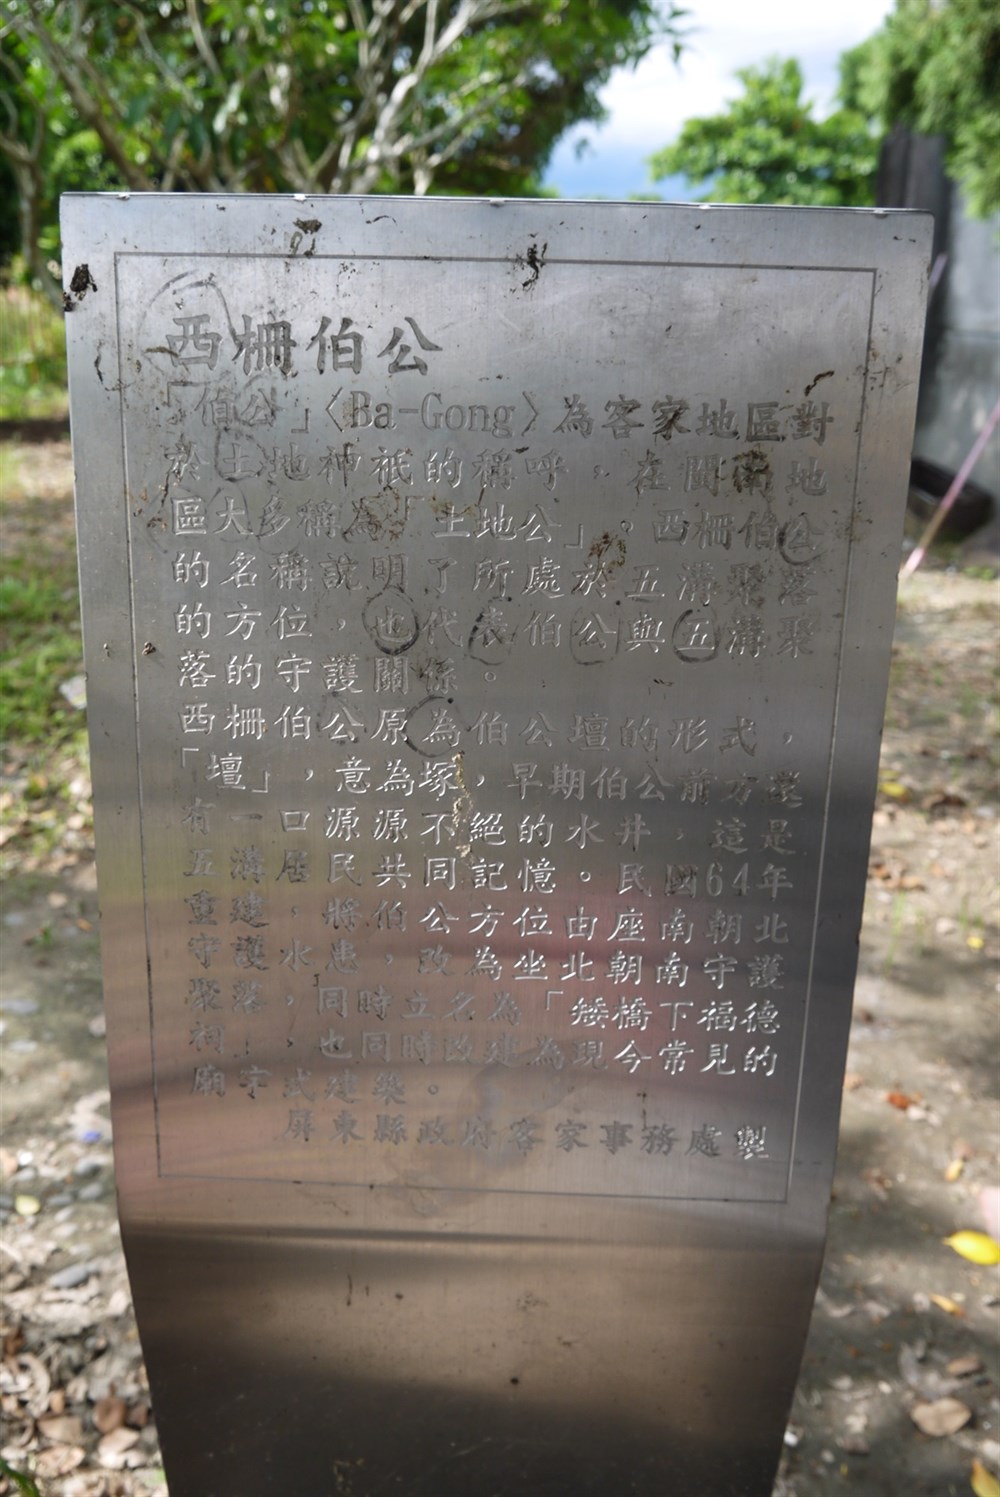 西柵伯公
「伯公」〈Ba-Gong〉為客家地區對
於土地神祇的稱呼，在閩南地
區大多稱為「土地公」。西柵伯公
的名稱說明了所處於五溝聚落
的方位，也代表伯公與五溝聚
落的守護關係。
西柵伯公原為伯公壇的形式，
「壇」，意為塚，早期伯公前方還
有一口源源不絕的水井，這是
五溝居民共同記憶。民國64年
重建，將伯公方位由座南朝北
守護水患，改為坐北朝南守護
聚落，同時立名為「矮橋下福德
祠」，也同時改建為現今常見的
廟宇式建築。
屏東縣政府客家事務處製